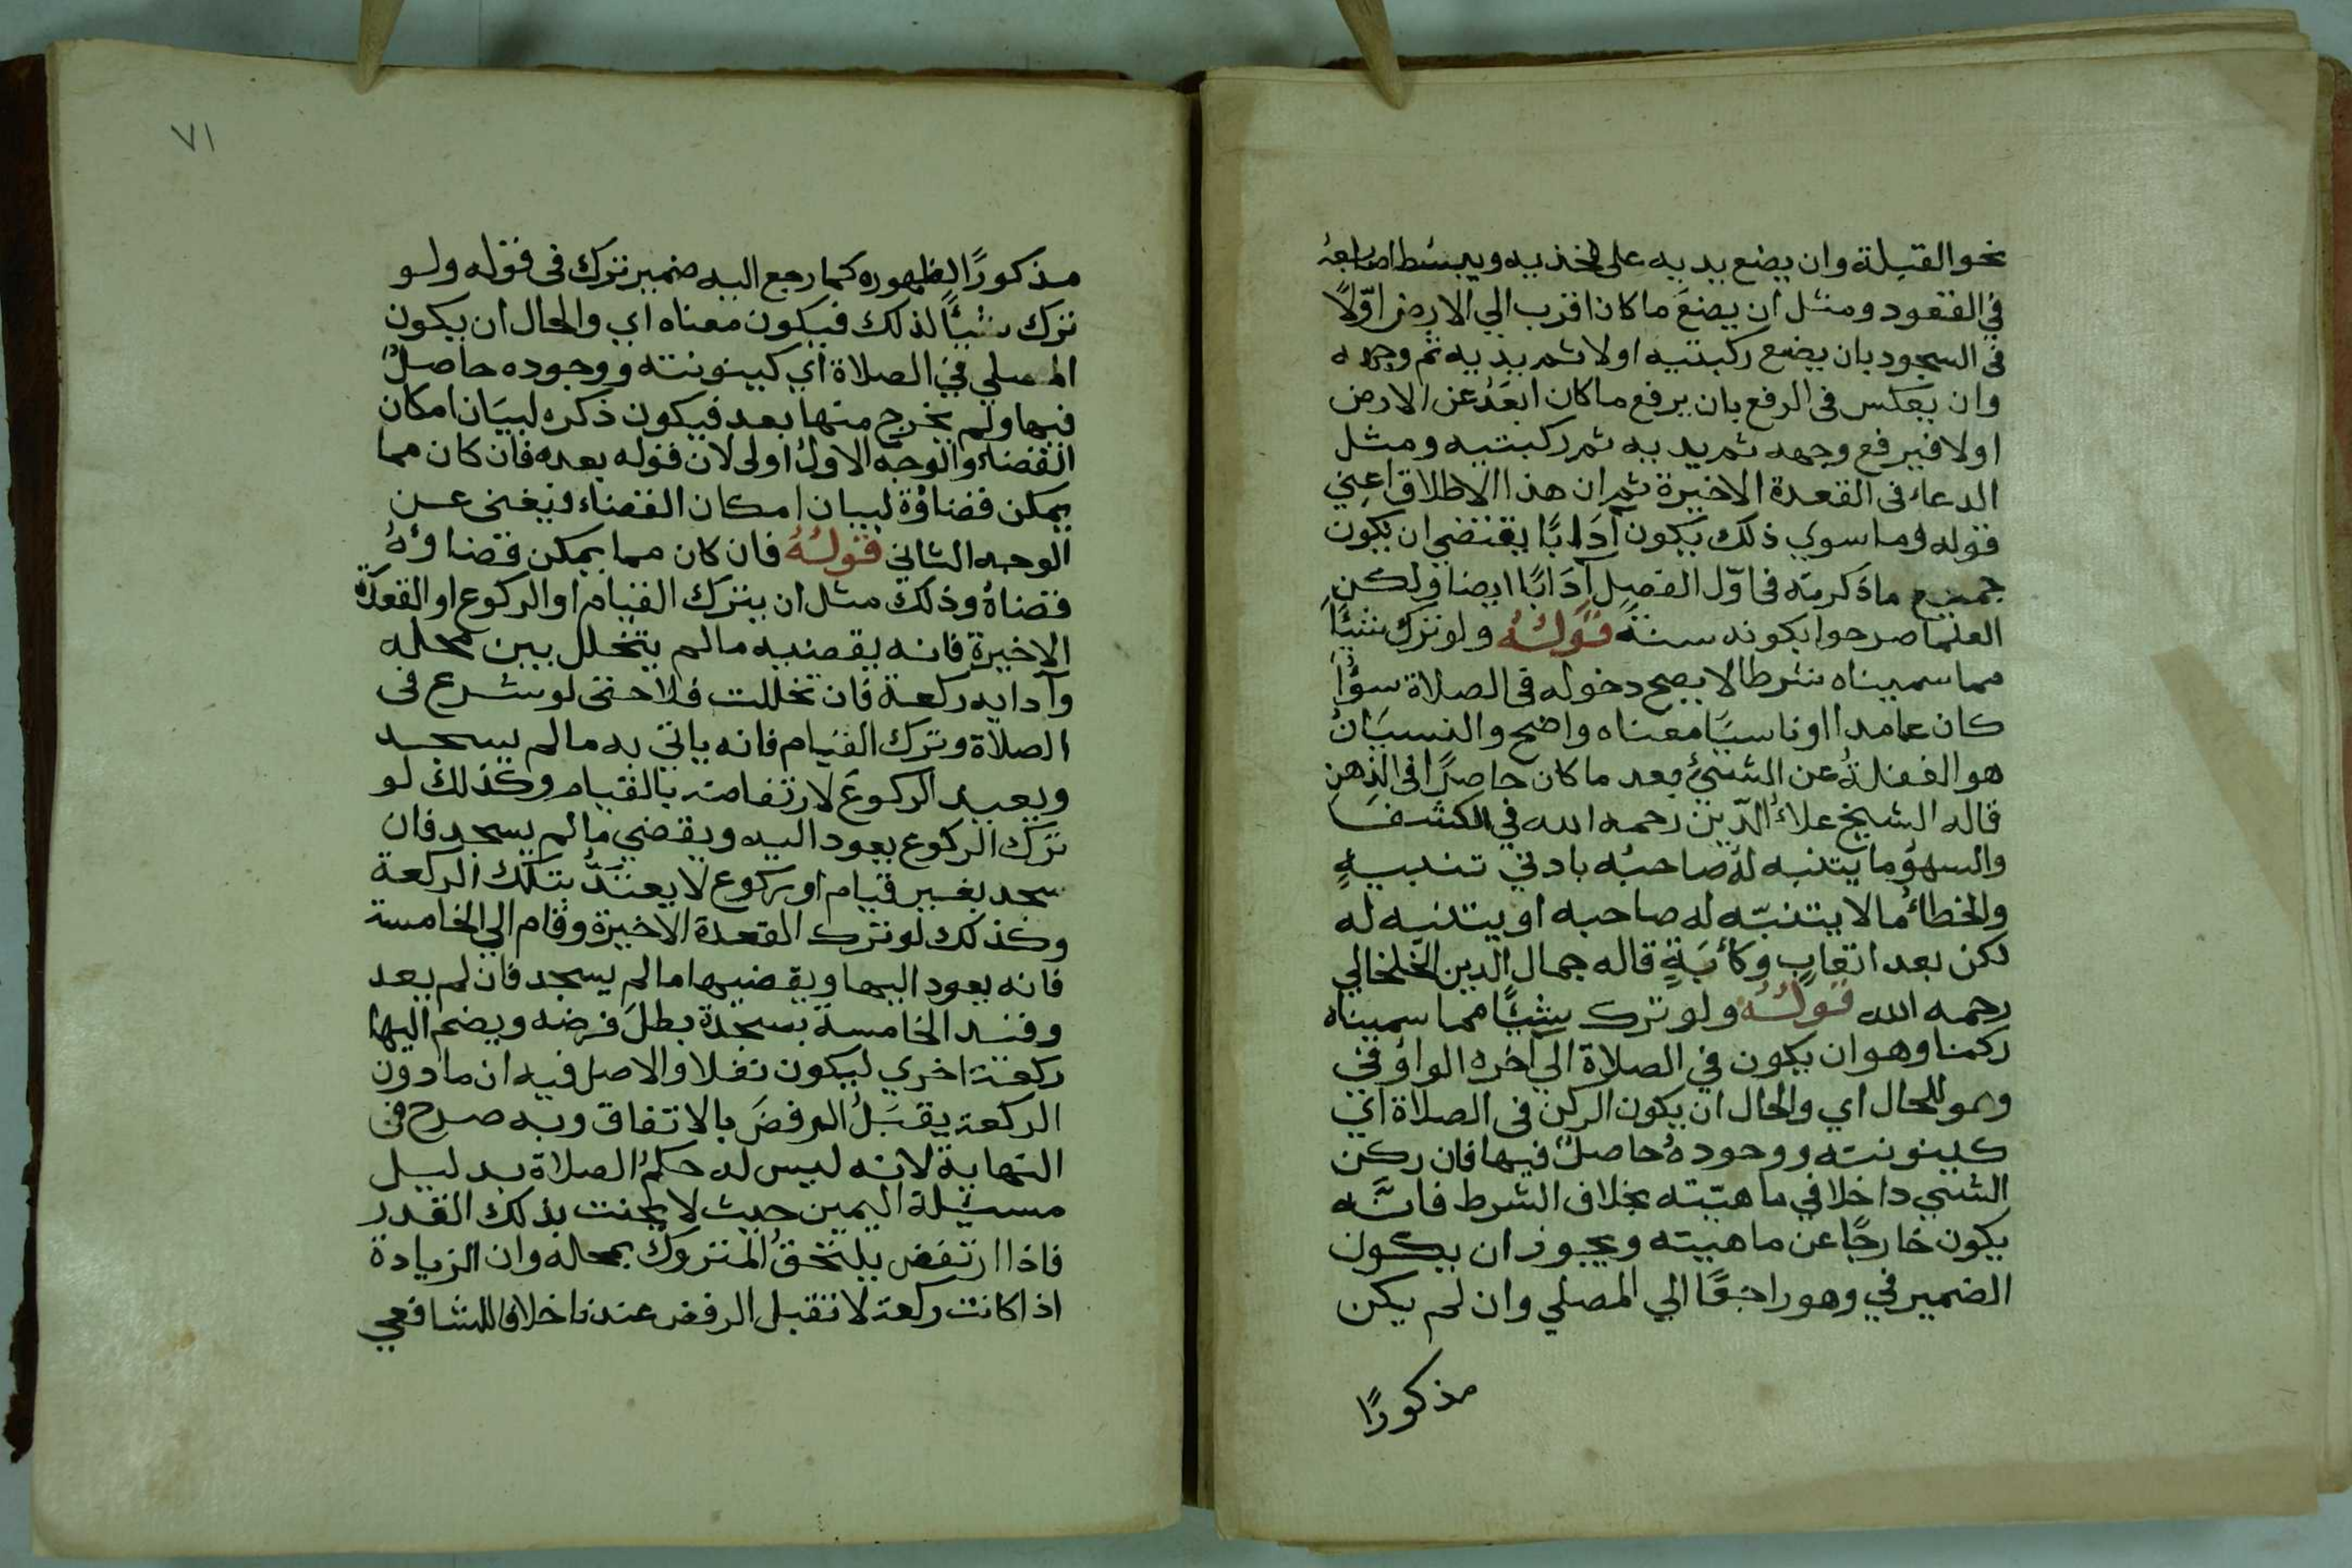 نحو القبلة وان يضع يديه على فخذيه ويبسط اصابعه
في القعود ومثل ان يضع ما كان اقرب الي الارض اوّلاً
في السجود بان يضع ركبتيه اولا ثم يديه ثم وجهه
وان يعكس في الرفع بان يرفع ما كان ابعد عن الارض
اولا فيرفع وجهه ثم يديه ثم ركبتيه ومثل
الدعاء في القعدة الاخيرة ثم ان هذا الاطلاق اعني
قوله وما سوي ذلك يكون آدابًا يقتضي ان يكون
جميع ما ذكرته في اوّل الفصل آدابًا ايضا ولكن
العلما صرحوا بكونه سنة قوله ولو ترك شيئًا
مما سميناه شرطا لا يصح دخوله في الصلاة سؤاً
كان عامدا او ناسيًا معناه واضح والنسيان
هو الغفلة عن الشيئ بعد ما كان حاصلًا في الذهن
قاله الشيخ علاء الدّين رحمه الله في الكشف
والسهو ما يتنبه له صاحبه بادني تنبيه
والخطاء ما لا يتنبّه له صاحبه او يتنبه له
لكن بعد اتعاب وكآبة قاله جمال الدين الخلخالي
رحمه الله قوله ولو ترك شيئًا مما سميناه
ركنا وهو ان يكون في الصلاة الي آخره الواو في
وهو للحال اي والحال ان يكون الركن في الصلاة اي
كينونته ووجوده حاصلٌ فيها فان ركن
الشيئ داخلا في ماهيّته بخلاف الشرط فانّه
يكون خارجًا عن ماهيته ويجوز ان يكون
الضمير في وهو راجعًا الي المصلي وان لم يكن
مذكورًا
٧١
مذكورًا لظهوره كما رجع اليه ضمير ترك في قوله ولو
ترك شيئًا لذلك فيكون معناه اي والحال ان يكون
المصلي في الصلاة اي كينونته ووجوده حاصلٌ
فيها ولم يخرج منها بعد فيكون ذكره لبيان امكان
القضاء والوجه الاول اولى لان قوله بعده فان كان مما
يمكن قضاؤة لبيان امكان القضاء فيغني عن
الوجه الثاني قوله فان كان مما يمكن قضاوُهُ
قضاهُ وذلك مثل ان يترك القيام او الركوع او القعدة
الاخيرة فانه يقضيه ما لم يتخلل بين محله
وآدايه ركعة فان تخللت فلا حتى لو شرع في
الصلاة وترك القيام فانه ياتي به ما لم يسجد
ويعيد الركوع لارتفاضه بالقيام وكذلك لو
ترك الركوع يعود اليه ويقضي ما لم يسجد فان
سجد بغير قيام او ركوع لا يعتدّ بتلك الركعة
وكذلك لو ترك القعدة الاخيرة وقام الي الخامسة
فانه يعود اليها ويقضيها ما لم يسجد فان لم يعد
وقيد الخامسة بسجدة بطل فرضه ويضم اليها
ركعة اخري ليكون نفلا والاصل فيه ان ما دون
الركعة يقبل الرفض بالاتفاق وبه صرح في
النهاية لانه ليس له حكم الصلاة بدليل
مسئلة اليمين حيث لا يحنث بذلك القدر
فاذا ارتفض يلتحق المتروك بمحله وان الزيادة
اذا كانت ركعة لا تقبل الرفض عندنا خلافا للشافعي